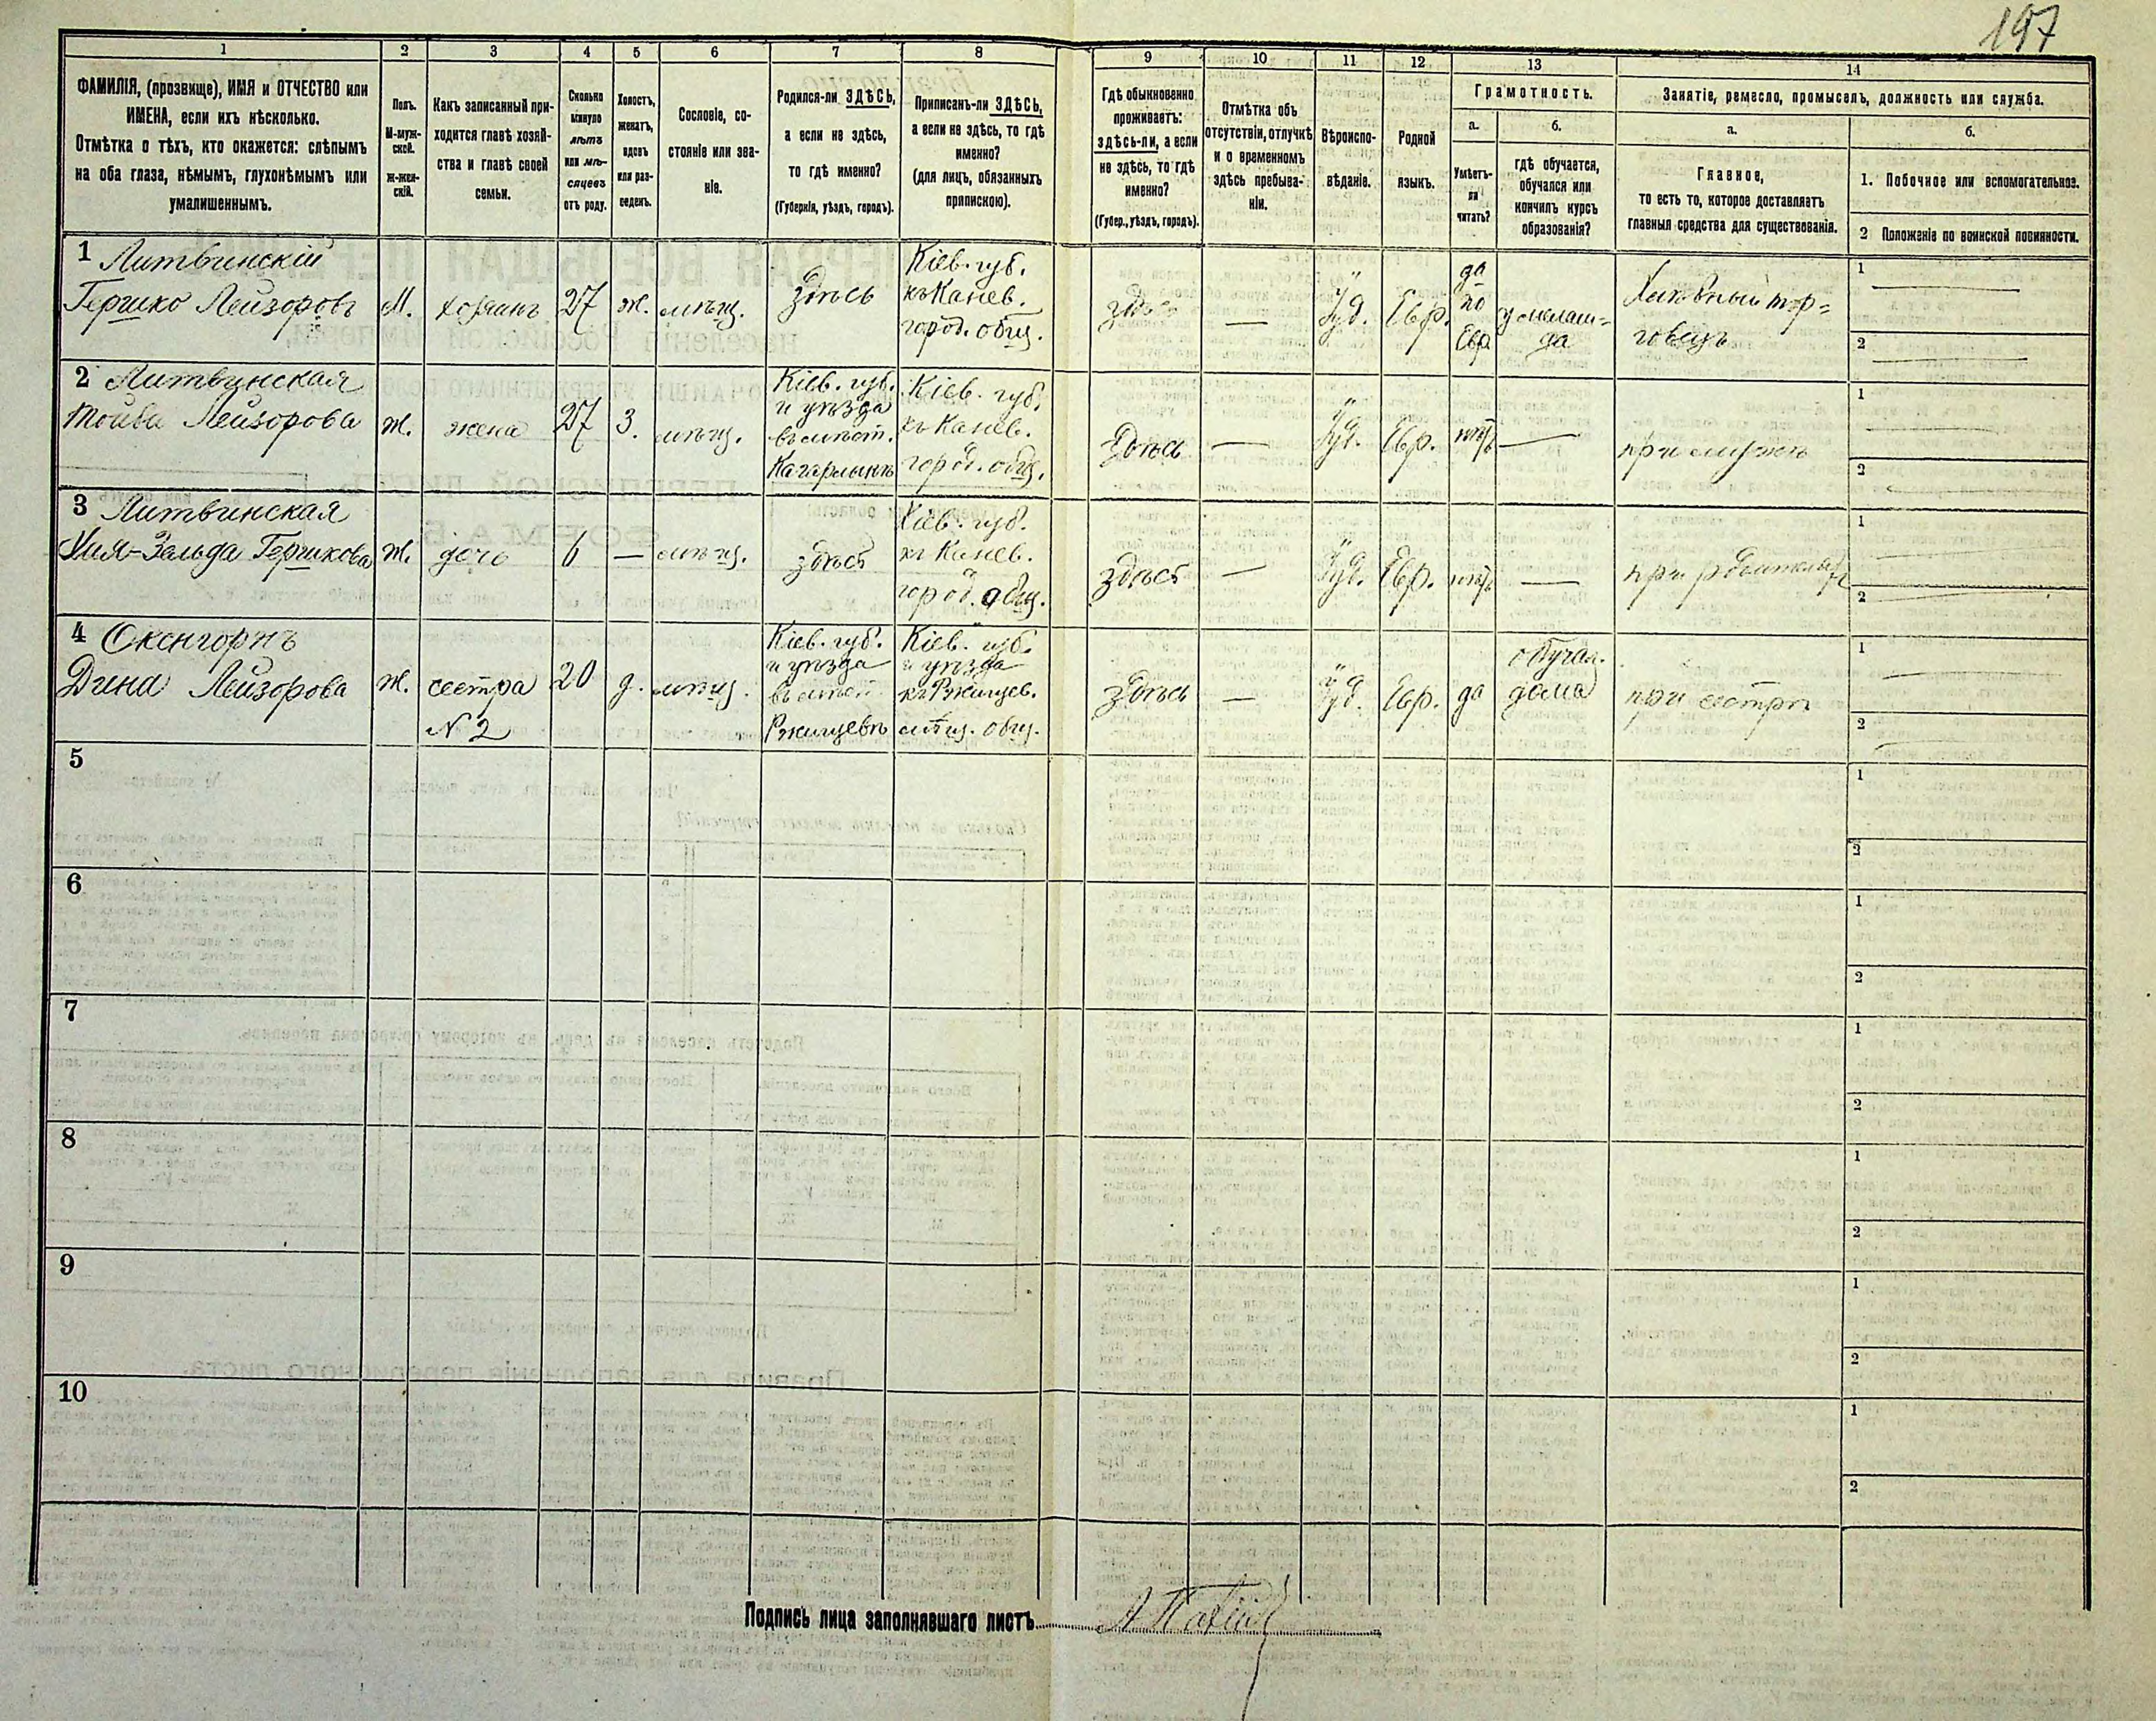 197
1 2 3 4 5 6 7 8 9 10 11 12 13 14
ФАМИЛІЯ, (прозвище), ИМЯ и ОТЧЕСТВО или
ИМЕНА, если ихъ нѣсколько.
Отмѣтка о тѣхъ, кто окажется: слѣпымъ
на оба глаза, нѣмымъ, глухонѣмымъ или
умалишеннымъ.
Полъ.
М-муж-
ской.
Ж-жен-
скій.
Какъ записанный при-
ходится главѣ хозяй-
ства и главѣ своей
семьи.
Сколько
минуло
лѣтъ
или мѣ-
сяцевъ
отъ роду.
Холостъ,
женатъ,
вдовъ
или раз-
веденъ.
Сословіе, со-
стояніе или зва-
ніе.
Родился-ли ЗДѢСЬ,
а если не здѣсь,
то гдѣ именно?
(Губернія, уѣздъ, городъ).
Приписанъ-ли ЗДѢСЬ,
а если не здѣсь, то гдѣ
именно?
(для лицъ, обязанныхъ
припискою).
Гдѣ обыкновенно
проживаетъ:
ЗДѢСЬ-ли, а если
не здѣсь, то гдѣ
именно?
(Губер., уѣздъ, городъ).
Отмѣтка объ
отсутствіи, отлучкѣ
и о временномъ
здѣсь пребыва-
ніи.
Вѣроиспо-
вѣданіе.
Родной
языкъ.
Грамотность.
а.
Умѣетъ-
ли
читать?
б.
гдѣ обучается,
обучался или
кончилъ курсъ
образованія?
Занятіе, ремесло, промыселъ, должность или служба.
а.
Главное,
то есть то, которое доставляетъ
главныя средства для существованія.
б.
1. Побочное или вспомогательное.
2 Положеніе по воинской повинности.
1 Литвинскій
Гершко Лейзоровъ
М.
хозяинъ
27
ж.
мѣщ.
здѣсь
Кіев. губ.
къ Канев.
город. общ.
здѣсь
—
Іуд.
Евр.
да
по
Евр
у мелам-
да
торговецъ
1
2
2 Литвинская
Лейзорова
Ж.
жена
27
З.
мѣщ.
Кіев. губ.
и уѣзда
въ мѣст.
Кагарлыкѣ
Кіев. губ.
къ Канев.
город. общ.
Здѣсь
—
Іуд.
Евр.
нѣтъ
—
при мужѣ
1
2
3 Литвинская
Хая-Зельда Гершкова
Ж.
дочь
6
—
мѣщ.
здѣсь
Кіев. губ.
къ Канев.
город. общ.
здѣсь
—
Іуд.
Евр.
нѣтъ
—
при родителяхъ
1
2
4 Оксенгорнъ
Дина Лейзорова
Ж.
сестра
№ 2
20
д.
мѣщ.
Кіев. губ.
и уѣзда
въ мѣст.
Ржищевѣ
Кіев. губ.
и уѣзда
къ Ржищев.
мѣщ. общ.
Здѣсь
—
Іуд.
Евр.
да
обучал.
дома
при сестрѣ
1
2
5
1
2
6
1
2
7
1
2
8
1
2
9
1
2
10
1
2
Подпись лица заполнявшаго листъ